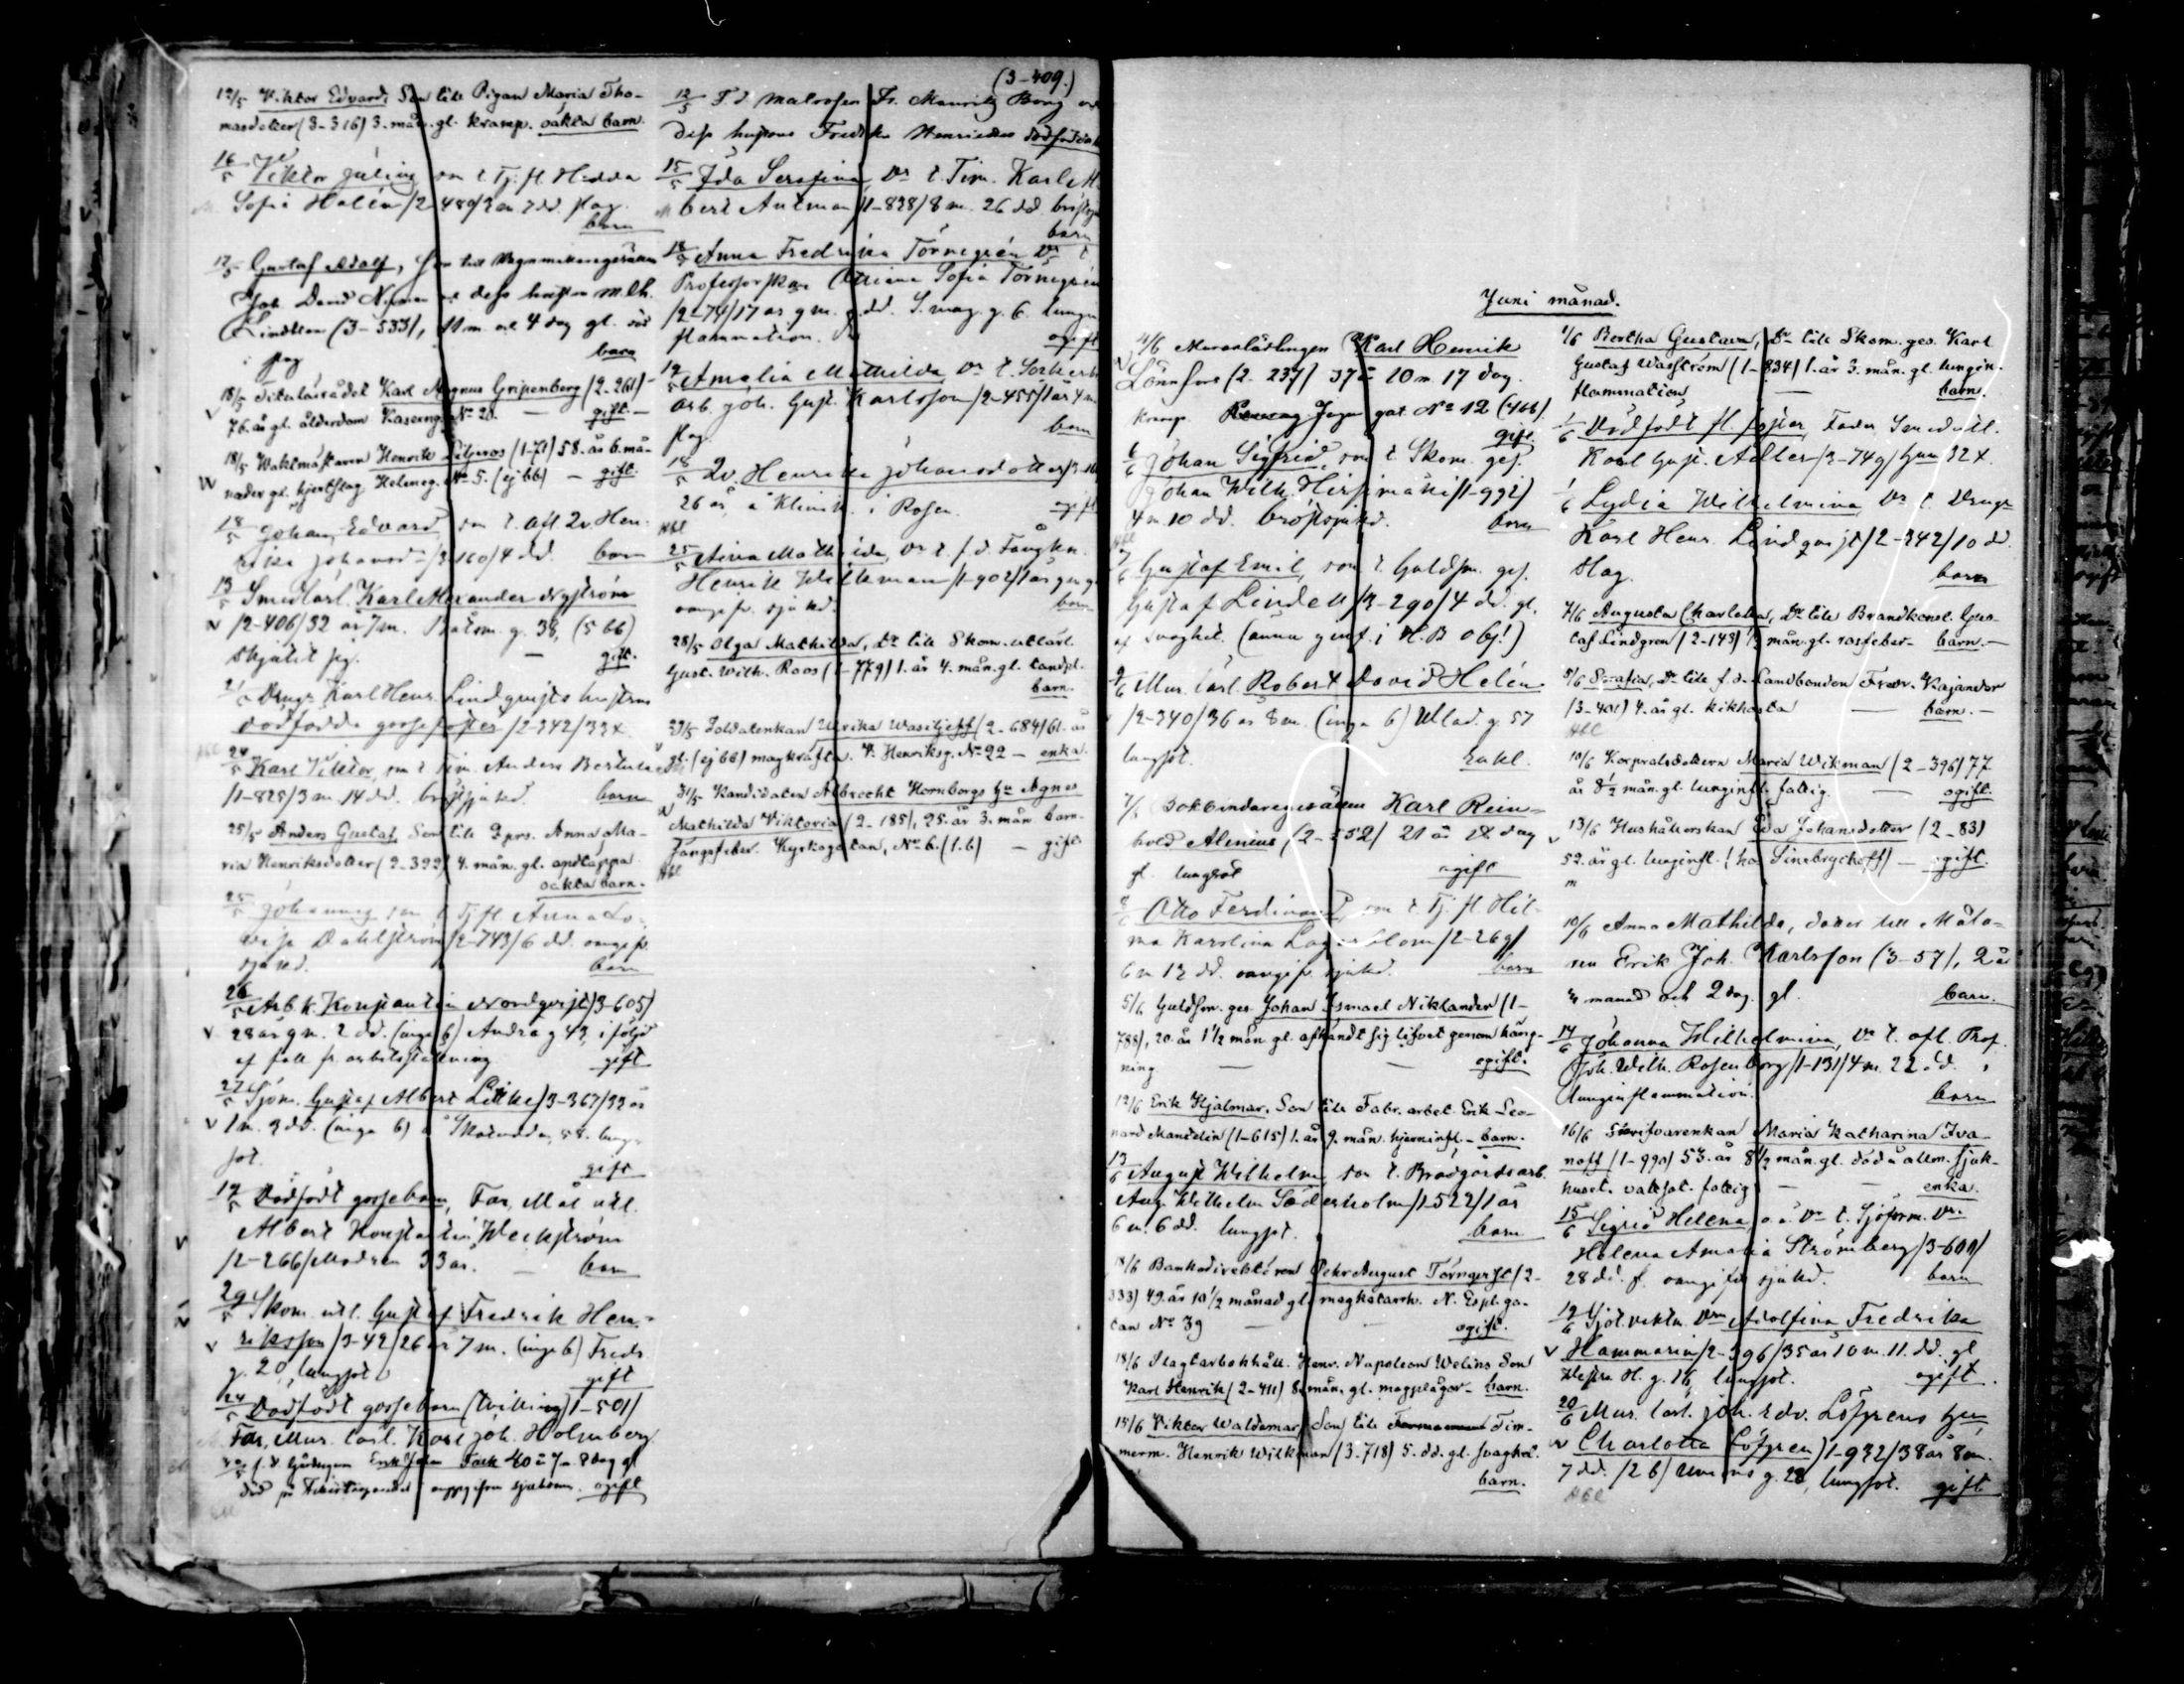 12/5 Viktor Edvard, Son till Pigan Maria Tho-
masdotter (3-316) 3. mån. gl. kramp. oäkta barn.
16/5 Viktor Julius son t. Tj. fl. Hedda
Sofia Holén /2 489/2 m 7 dd. slag.
barn
17/5 Gustaf Adolf, Son till
Joh. David Nyman dess hustru
Lindblom (3-533), 11 m. och 4 dag gl.
slag barn
18/5 Titulärrådet Karl Magnus Gripenberg (2-261)
76. år gl. ålderdom Kaserng. No 20. — gift. —
18/5 Waktmästaren Henrik Liljeroos (1-71) 58. år 6. må-
nader gl. hjertslag Helsineg. No 5. (ej 66) — gift.
18/5 Johan Edvard son t. afl. Qv. Hen-
rika Johansd /3 160/4 dd. barn
13/5 Smedlärl. Karl Alexander Nyström
/2-406/32 år 7 m. Båtsm. g. 38, (5 66)
skjutit sig. — gift.
21/5 Drugs Karl Henr. Lindqvists hustrus
dödfödda gossefoster /2-342/33 x.
24/5 Karl Viktor, son t. Tim. Anders
/1-825/3 m. 14 dd. bröstsjukd. barn
25/5 Anders Gustaf, Son till Qprs. Anna Ma-
ria Henriksdotter (2-392) 4. mån. gl. andtäppa
oäkta barn.
25/5 Johannes son t. Tj. fl. Anna Lo-
visa Dahlström /2-743/6 dd. oangifv.
sjukd. barn
26/5 Arb. k. Konstantin Nordqvist /3-605/
28 år 9 m. 2 dd. (inga 6) Andra g 43, i följd
af fall fr. arbetsställning gift
27/5 Sjöm. Gustaf Albert Litike /3-367/32 år
1 m. 3 dd. (inga 6) Skatudden, 58. lung-
sot. gift
19/5 Dödfödt gossebarn, Far, Mål. utl.
Albert Konstantin Weckström
/2-266/ Modren 33 år. — barn
29/5 Skom. utl. Gustaf Fredrik Hen-
riksson /3-42/26 år 7 m. (inga 6) Fredr.
g. 20, lungsot gift
24/5 Dödfödt gossebarn (tvilling) 1-501/
Far, Mur. lärl. Karl Joh. Holmberg
f. d. Erik Johan 40 å 7 m 8 dag gl
död på oangifven sjukdom. ogift
(3-409.)
12/5 F. d. Matrosen Fr. Mauritz Borg och
dess hustrus Fredrika Henriettas
15/5 Ida Serafina, Dr t. Tim. Karl Al-
bert Autman /1-828/8 m. 26 dd. bröstsju
barn
18/5 Anna Fredrika Törnegrén Dr t
Professorskan Sofia Törnegrén
/2-74/17 år 9 m. 9 dd. S. mag. g. 6. lungin
flammation. ogift
19/5 Amalia Mathilda Dr t. Sockerb
arb. Joh. Gust. Karlsson /2-455/1 år 4 m.
slag. barn
18/5 Qv. Henrika Johansdotter /3-16
26 år, å Klinik. i Rosen. ogift
25/5 Aina Mathilda, Dr t. f. d. Fångkn.
Henrik Wilkman /1-902/1 år
oangifv. sjukd. barn
28/5 Olga Mathilda, Dr till Skom. utlärl.
Gust. Wilh. Roos (1-779) 1. år 4. mån. gl. tandsl.
barn.
29/5 Soldatenkan Ulrika Wasiljeff (2-684) 61. år
gl. (ej 66) magkräfta. V. Henriksg. No 22 — enka.
31/5 Kandidaten Albrecht Hornborgs hu Agnes
Mathilda Viktoria (2-185), 25. år 3. mån barn-
sängsfeber. Kyrkogatan, No 6. (1.6) — gift
Juni månad.
4/6 Murarlärlingen Karl Henrik
Lönnfors (2-237) 37 år 10 m 17 dag.
kramp. gat. No 12 (466)
gift.
6/6 Johan Sigfrid, son t. Skom. ges.
Johan Wilh. Hirsimäki /1-992/
4 m. 10 dd. bröstsjukd. barn
7/6 Gustaf Emil, son t. Guldsm. ges.
Gustaf Lindell /3-290/4 dd. gl.
af svaghet. (ännu i H. B. Obs!)
9/6 Mur. lärl. Robert David Helén
/2-340/36 år 8 m. (inga 6) Ullad. g. 57
lungsot. Enkl.
7/6 Bokbindaregesällen Karl Rein-
hold Alenius, (2-252) 21 år 18 dag
gl. lungsot ogift
8/6 Otto Ferdinand, son t. Tj. fl. Hil-
ma Karolina Lagerblom /2-269/
6 m. 12 dd. oangifv. sjukd. barn
5/6 Guldsm. ges. Johan Ismael Niklander (1-
788), 20. år 1 1/2 mån. gl. afhändt sig lifvet genom häng-
ning — — ogift.
12/6 Erik Hjalmar, Son till Fabr. arbet. Erik Leo-
nard Mandelin (1-615) 1. år 9. mån. hjerninfl. — barn.
13/6 August Wilhelm, son t. Brädgårdsarb.
Aug. Wilhelm Söderholm /1-522/1 år
6 m. 6 dd. lungsot. barn
18/6 Bankodirektören Pehr August Törnqvist (2-
333) 49. år 10 1/2 månad gl. magkatarrh. N. Espl. ga-
tan No 39 — ogift.
18/6 Slagtarbokhåll. Henr. Napoleon Welins Son
Karl Henrik (2-411) 8. mån. gl. magplågor — barn.
15/6 Viktor Waldemar, Son till Tim-
merm. Henrik Wilkman (3-718) 5. dd. gl. svaghet.
barn.
1/6 Bertha Gustava, Dr till Skom. ges. Karl
Gustaf Wasström (1-834) 1. år 3. mån. gl. lungin-
flammation, — barn.
1/6 Dödfödt fl. foster, Fader Smed utl.
Karl Gust. Adler /3-74g/ hun 32 x.
1/6 Lydia Wilhelmina Dr t. Drugs
Karl Henr. Lindqvist /2-342/10 dd.
slag. barn
7/6 Augusta Charlotta, Dr till Brandkonst. Gus-
taf Lindgren (2-143) mån. gl. rosfeber — barn. —
5/6 Serafia, Dr till f. d. Landbonden Fredr. Kajander
(3-401) 4. år gl. kikhosta — barn. —
10/6 Korpralsdottern Maria Wikman (2-396) 77
år 8 1/2 mån. gl. lunginfl. fattig. — ogift.
13/6 Hushållerskan Eva Johansdotter (2-83)
52. år gl. lunginfl. (hos Sinebrychoff) — ogift.
10/6 Anna Mathilda, dotter till Måla-
ren Erik Joh. Karlsson (3-57), 2 år
månad och 2 dag. gl. barn.
14/6 Johanna Wilhelmina, Dr t. afl. Prof.
Joh. Wilh. Rosenborg /1-131/4 m. 22 d.
lunginflammation. barn
16/6 Skrifvarenkan Maria Katharina Iva-
noff (1-990) 53. år 8 1/2 mån. gl. död å allm. sjuk-
huset. vattsot. fattig — — enka.
15/6 Sigrid Helena, o. ä. Dr t. Sjöform. Dr.
Helena Amalia Strömberg /3-601/
28 dd. f. oangifv. sjukd. barn
19/6 Sjöt. vaktm. Drn Adolfina Fredrika
Hammarin /2-396/35 år 10 m. 11. dd. gl
Westra H. g. 16, lungsot. ogift.
20/6 Mur. lärl. Joh. Edv. Löfgrens hu,
Charlotta Löfgren /1-932/38 år 8 m.
7 dd. /2 6/ Unions g. 28, lungsot. gift